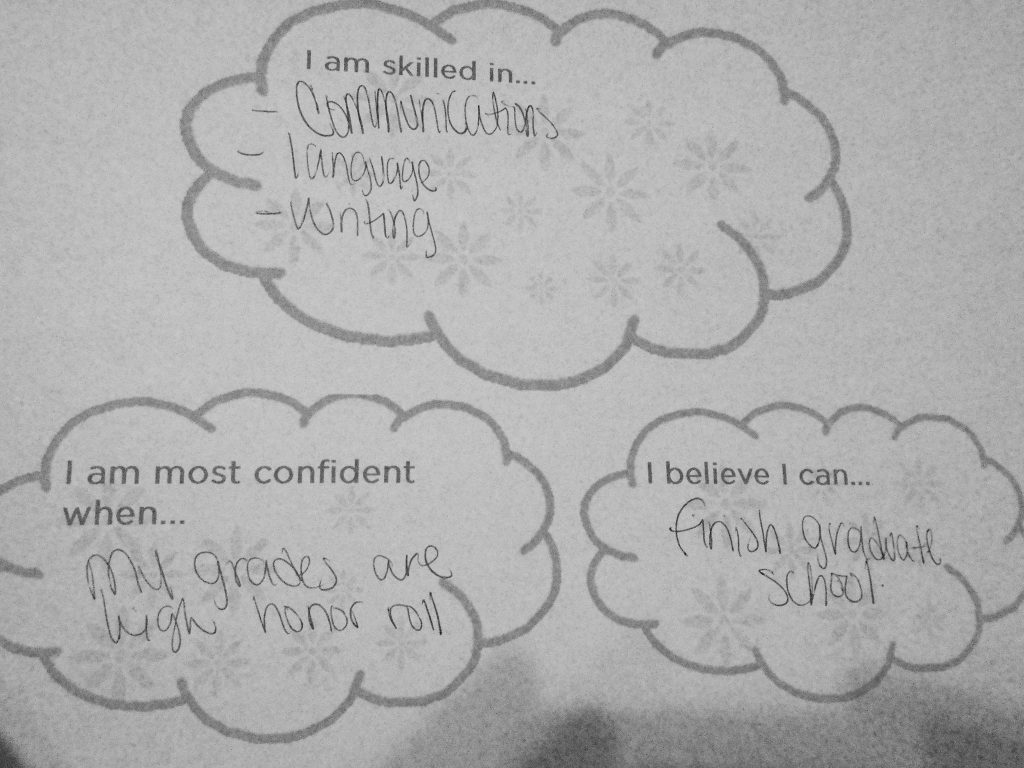 I am skilled in...
- Communications
- language
- writing
I am most confident
when...
My grades are
high honor roll
I believe I can...
finish graduate
school.